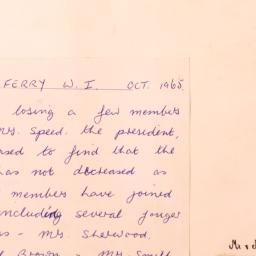 FERRY W. I. OCT. 1965.
losing a few members
Mrs. Speed. the president,
ased to find that the
has not decreased as
members have joined
including several younger
s - Mrs Sherwood,
Brown - Mrs Smith